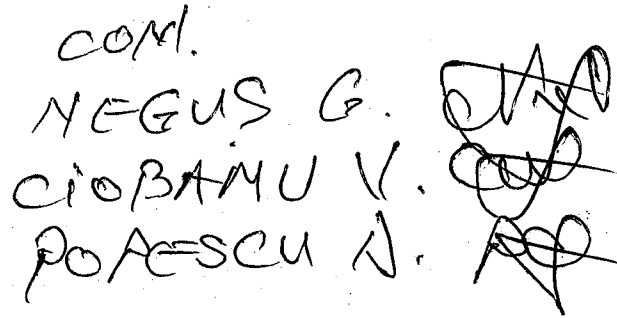 COM.
NEGUS G.
CIOBANU V.
POPESCU N.